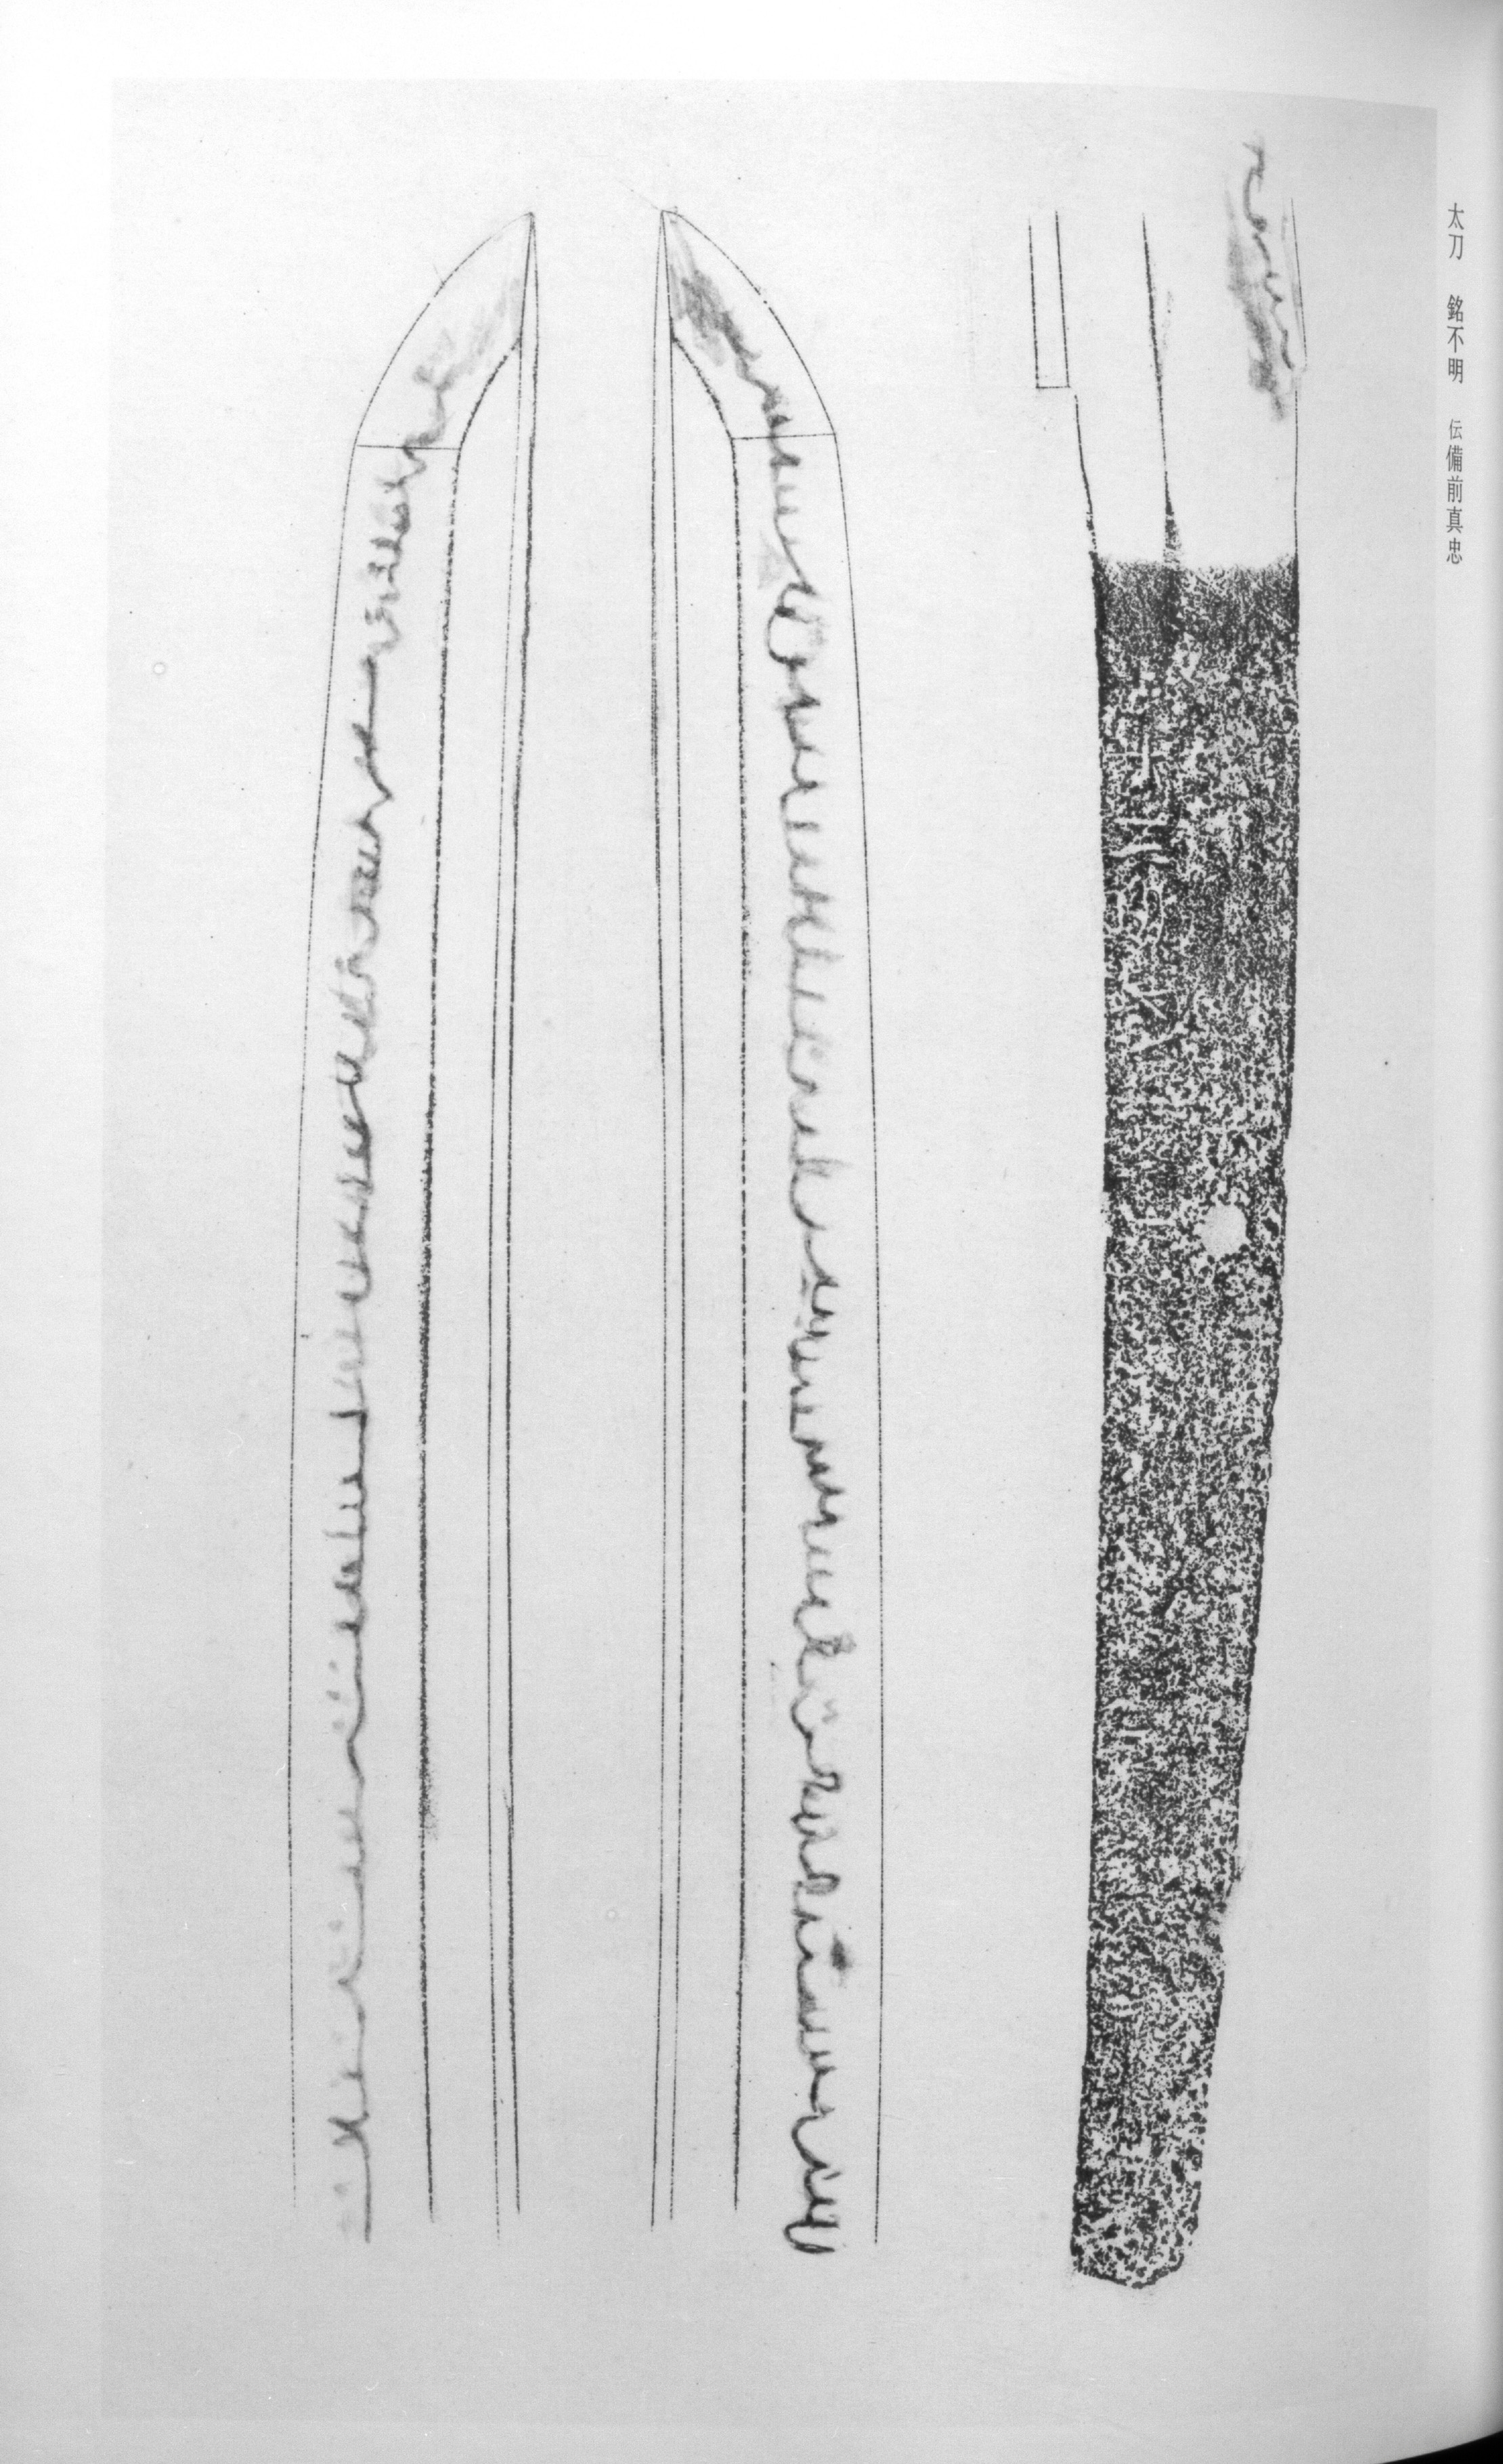 太刀 銘不明 伝備前真忠